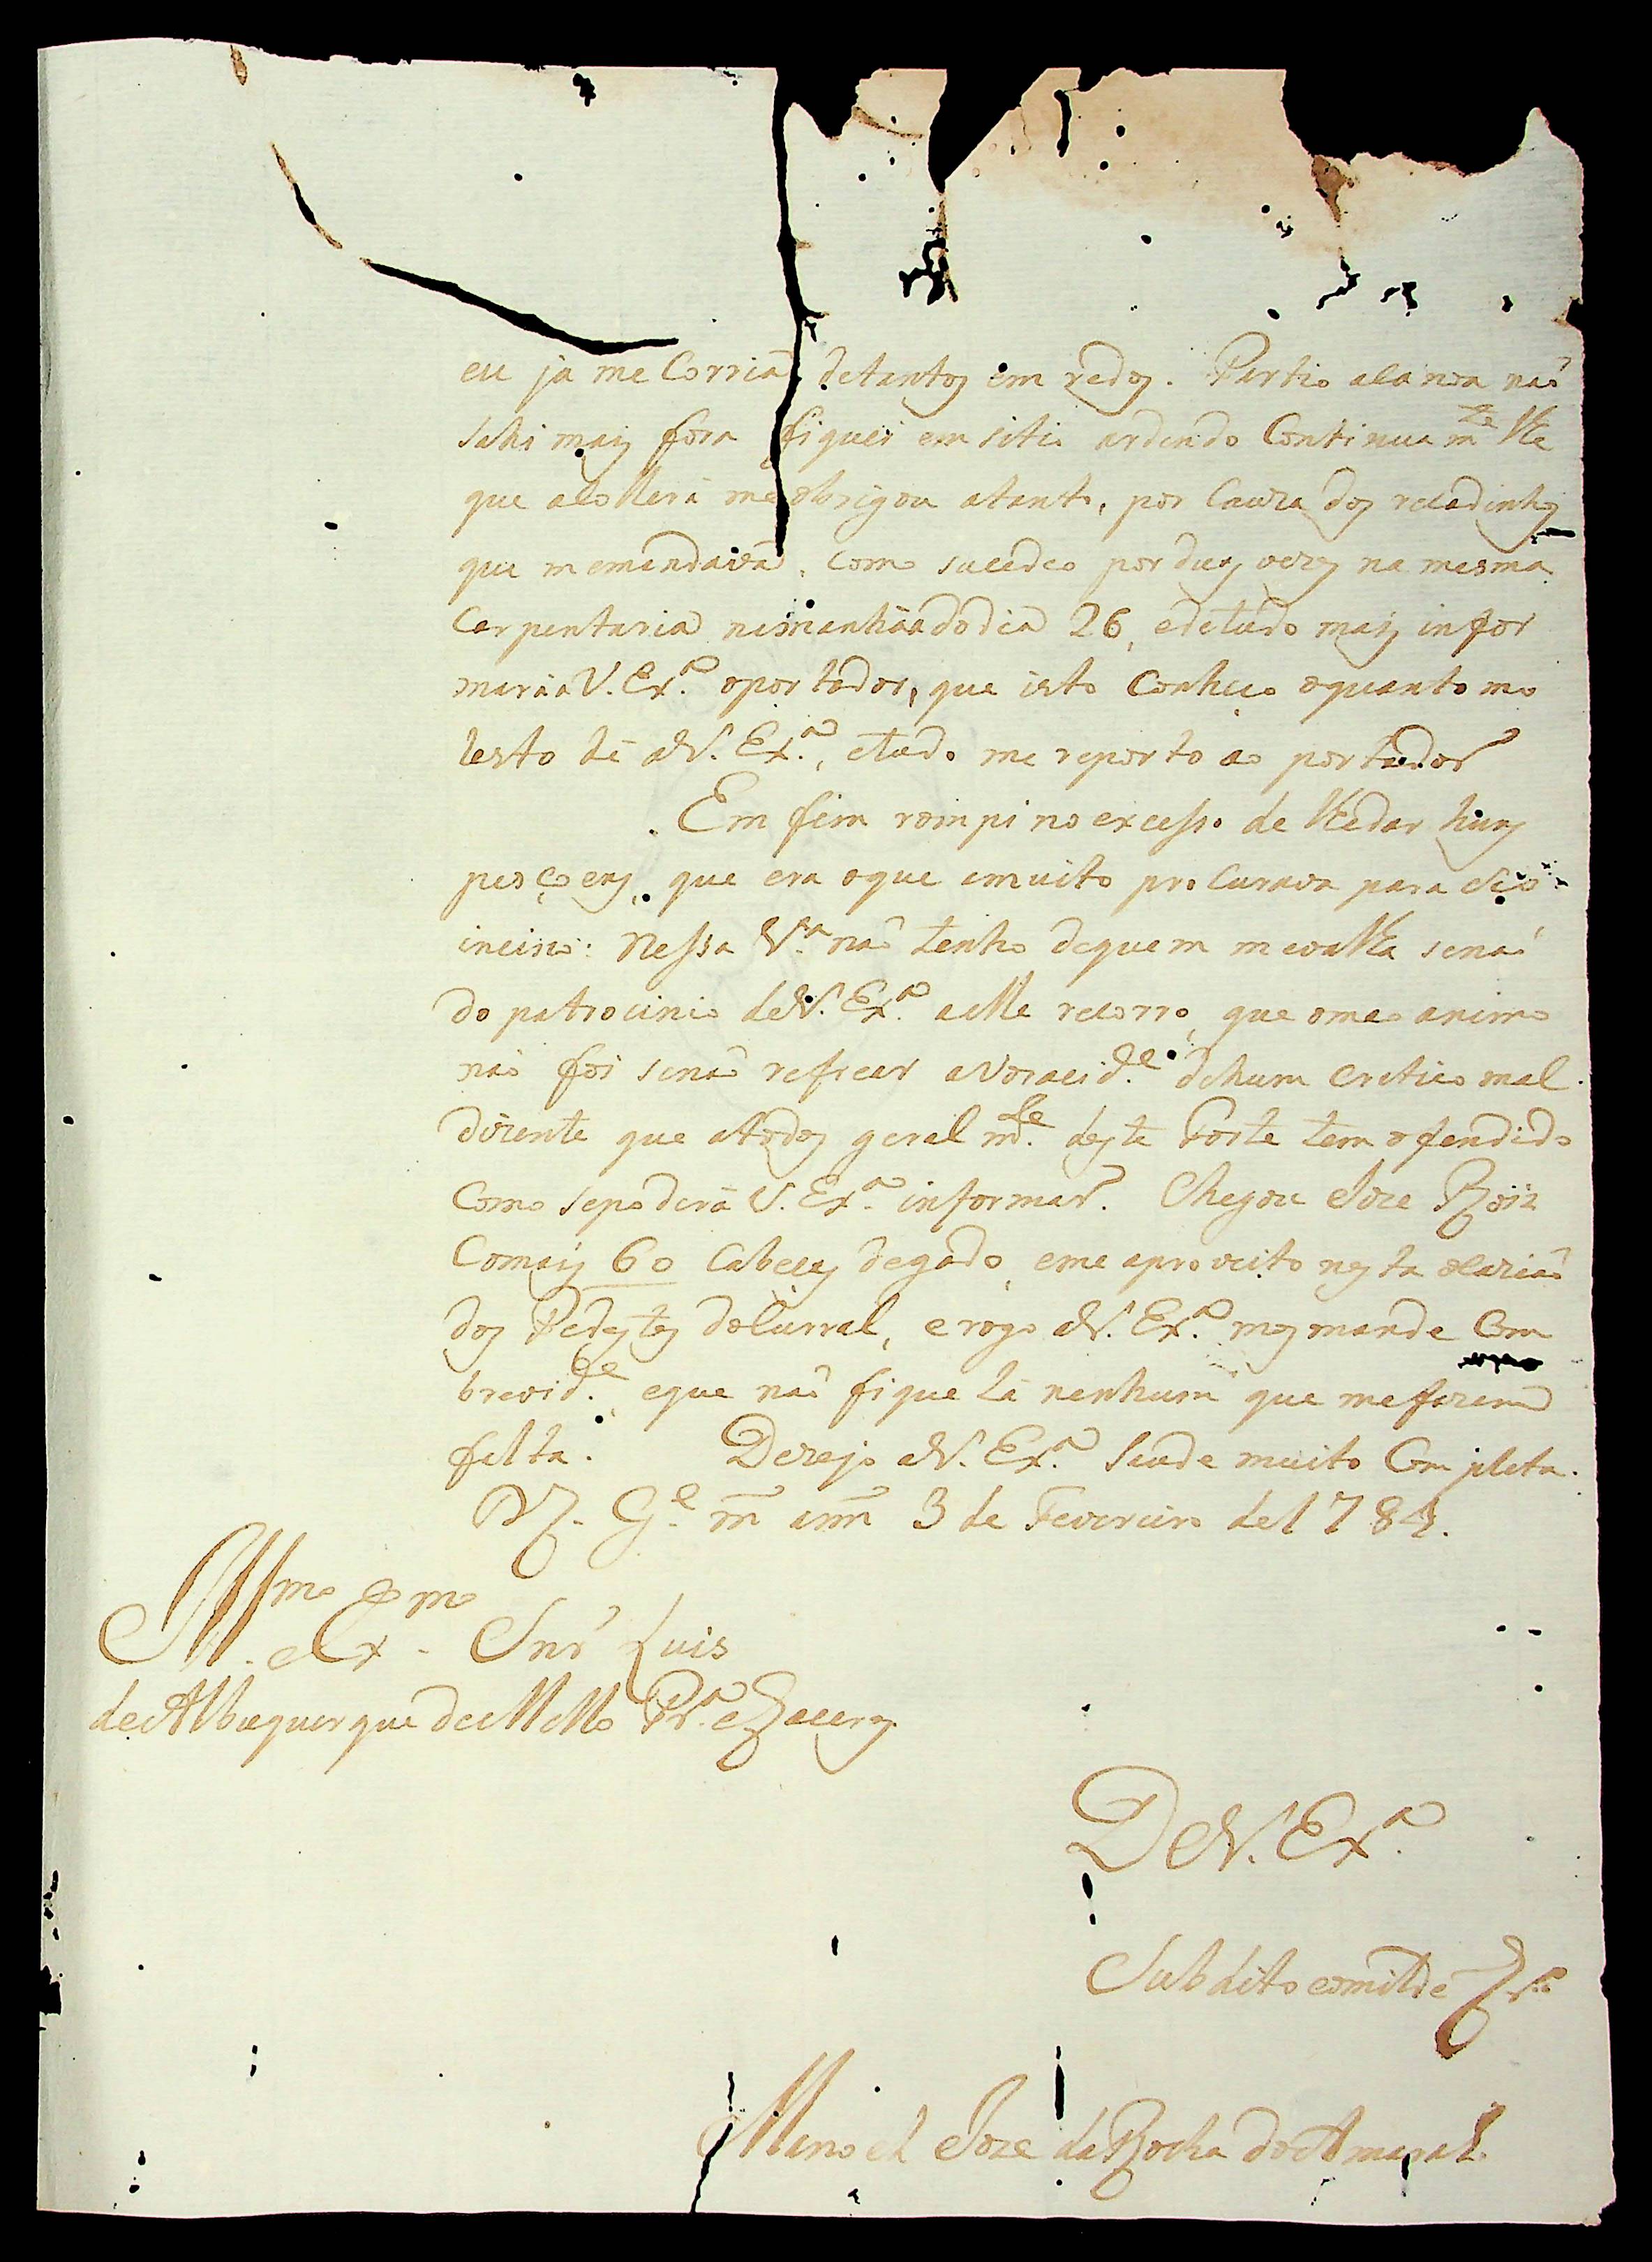 eu ja me Corriã detantos em redos. Partio alanxa naõ
sahi mais fora fiquei em sitio ardendo Continuam.te
que a collera me obrigou atanto, por Cauza dos recadinhos
que memandavã, Como sucedeo por duas vezes na mesma
Carpentaria na manhãa dodia 26, edetudo mais infor
mara a V. Ex.a oportador, que isto Conheço oquanto mo
lesto hé aV. Ex.a, etudo me reporto ao portador
Em fim rompi no excesso de lhedar huns
pescoçoens, que era oque
nessa V.a naõ tenho dequem mevalha senaõ
do patrocinio deV. Ex.a aelle recorro, que omeo animo
naõ foi senaõ refrear avoracid.e dehum Cretico mal
dizente que atodos geralm.te deste Forte tem ofendido
Como sepoderá V. Ex.a informar. Chegou Joze Roiz
Comais 60 Cabeças degado, eme aproveito nesta
dos Pedestes doCurral, erogo aV. Ex.a mos mande Com
brevid.e, eque naõ fique lá nenhum que mefazem
falta. Dezejo aV. Ex.a Saude muito Completa.
D.s G.e m ann 3 de Fevereiro de1784.
Ill.mo e Ex.mo Snr' Luis
deAlbuquerque deMello Pr.a eCaceres
DeV. Ex.a
Subdito eomilde
Manoel Joze daRocha doAmaral.